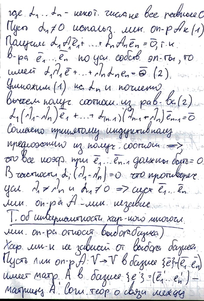 где α₁...αₙ - некот. числа не все равные 0
Пусть αₙ≠0 использ. лин. оп-р A к (1)
Получим α₁Aē₁+...+αₙAēₙ=0̄, т.к.
в-ра ē₁... по усл. собств. эл-ты, то
имеем α₁λ₁ē₁+...+αₙλₙēₙ=0̄ (2).
Умножим (1) на λₙ и почленно
вычтем получ. соотнош. из рав-ва (2)
α₁(λ₁-λₙ)ē₁+...+
Согласно принятому индуктивному
предположению из получ. соотнош. ⟹
это все коэф. при ē₁... должны быть=0.
В частности α₁(λ₁-λₙ)=0 что противореч.
усл.
лин. оп-ра A - лин. независ.
Т. об инвариантности хар-ного многочл.
лин. оп-ра относит. выбора базиса
Хар. мн-н не зависит от выбора базиса
Пусть лин. оп-р A: V→V в базисе
имеет матр. A в базисе
матрицу A'. Согл. теор. о связи между